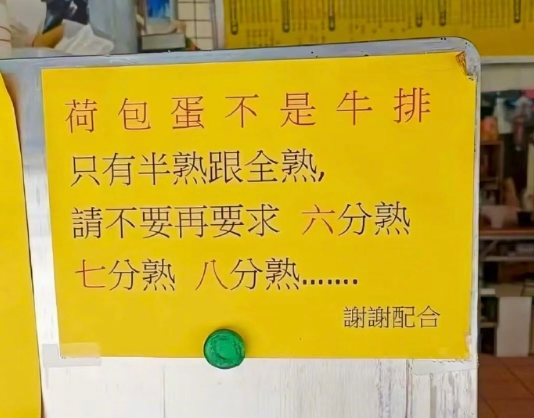 荷包蛋不是牛排
只有半熟跟全熟,
請不要再要求 六分熟
七分熟 八分熟.......
謝謝配合